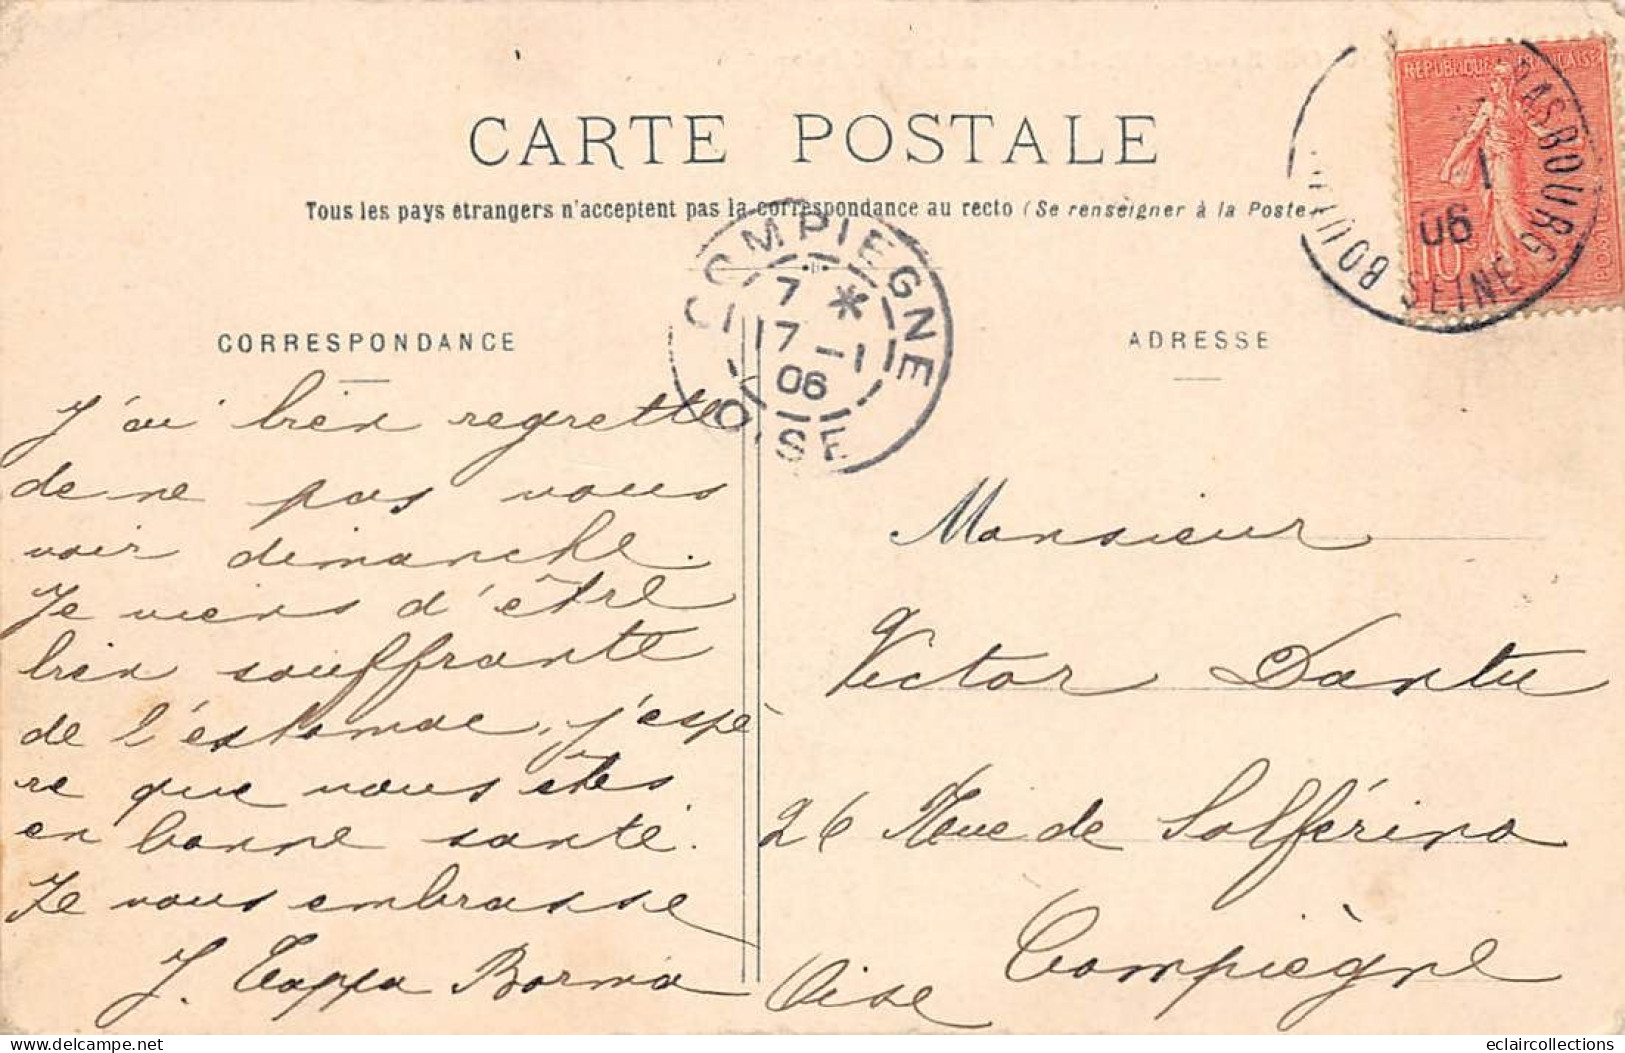 CARTE POSTALE
Tous les pays étrangers n'acceptent pas la correspondance au recto (Se renseigner à la Poste
RÉPUBLIQUE FRANÇAISE
10
POSTES
RASBOURG
1
06
SEINE
COMPIEGNE
7 *
17 - 1
06
OISE
CORRESPONDANCE
J'ai bien regretté
de ne pas vous
voir dimanche.
Je viens d'être
bien souffrante
de l'estomac, j'espè
re que vous êtes
en bonne santé.
Je vous embrasse
J. Borma
ADRESSE
Monsieur
Victor Dantu
26 Rue de Solférino
Compiègne
Oise
eclaircollections